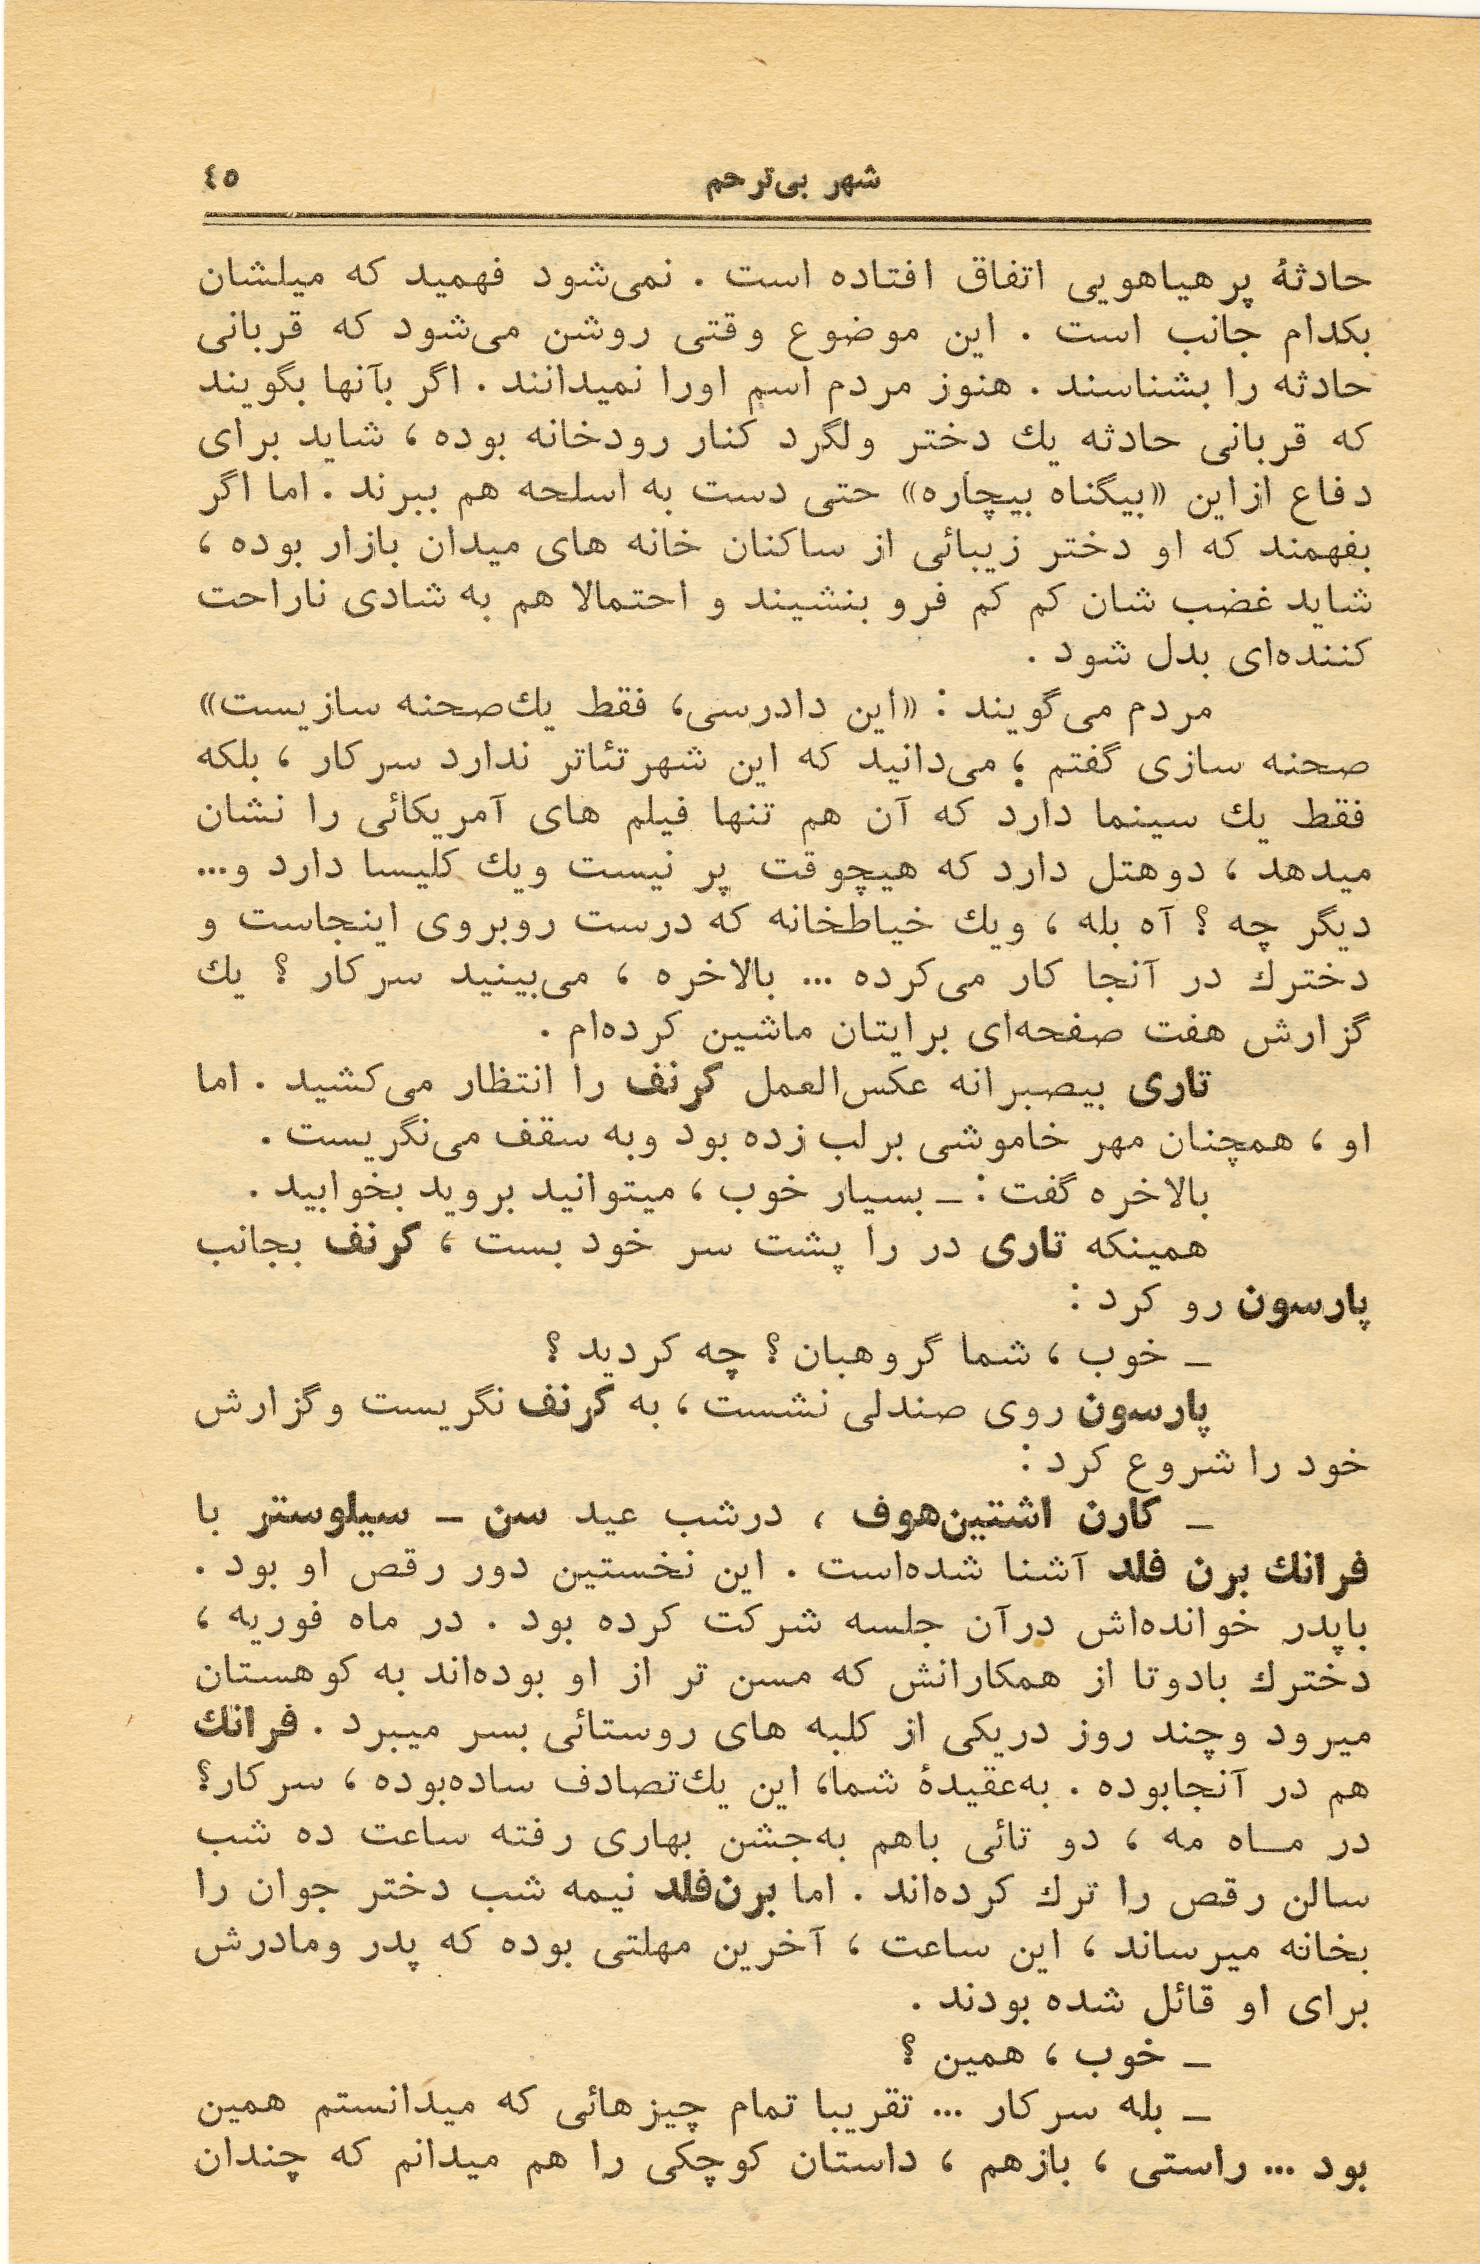 شهر بی‌ترحم ٤٥
حادثهٔ پرهیاهویی اتفاق افتاده است . نمی‌شود فهمید که میلشان
بکدام جانب است . این موضوع وقتی روشن می‌شود که قربانی
حادثه را بشناسند . هنوز مردم اسم اورا نمیدانند . اگر بآنها بگویند
که قربانی حادثه یك دختر ولگرد کنار رودخانه بوده ، شاید برای
دفاع ازاین «بیگناه بیچاره» حتی دست به اسلحه هم ببرند . اما اگر
بفهمند که او دختر زیبائی از ساکنان خانه های میدان بازار بوده ،
شاید غضب شان کم کم فرو بنشیند و احتمالا هم به شادی ناراحت
کننده‌ای بدل شود .
مردم می‌گویند : «این دادرسی، فقط یك‌صحنه سازیست»
صحنه سازی گفتم ؛ می‌دانید که این شهرتئاتر ندارد سرکار ، بلکه
فقط یك سینما دارد که آن هم تنها فیلم های آمریکائی را نشان
میدهد ، دوهتل دارد که هیچوقت پر نیست ویك کلیسا دارد و...
دیگر چه ؟ آه بله ، ویك خیاطخانه که درست روبروی اینجاست و
دخترك در آنجا کار می‌کرده ... بالاخره ، می‌بینید سرکار ؟ یك
گزارش هفت صفحه‌ای برایتان ماشین کرده‌ام .
تاری بیصبرانه عکس‌العمل کرنف را انتظار می‌کشید . اما
او ، همچنان مهر خاموشی برلب زده بود وبه سقف می‌نگریست .
بالاخره گفت : ـ بسیار خوب ، میتوانید بروید بخوابید .
همینکه تاری در را پشت سر خود بست ، کرنف بجانب
پارسون رو کرد :
ـ خوب ، شما گروهبان ؟ چه کردید ؟
پارسون روی صندلی نشست ، به کرنف نگریست وگزارش
خود را شروع کرد :
ـ کارن اشتین‌هوف ، درشب عید سن ـ سیلوستر با
فرانك برن فلد آشنا شده‌است . این نخستین دور رقص او بود .
باپدر خوانده‌اش درآن جلسه شرکت کرده بود . در ماه فوریه ،
دخترك بادوتا از همکارانش که مسن تر از او بوده‌اند به کوهستان
میرود وچند روز دریکی از کلبه های روستائی بسر میبرد . فرانك
هم در آنجابوده . به‌عقیدهٔ شما، این یك‌تصادف ساده‌بوده ، سرکار؟
در مـاه مه ، دو تائی باهم به‌جشن بهاری رفته ساعت ده شب
سالن رقص را ترك کرده‌اند . اما برن‌فلد نیمه شب دختر جوان را
بخانه میرساند ، این ساعت ، آخرین مهلتی بوده که پدر ومادرش
برای او قائل شده بودند .
ـ خوب ، همین ؟
ـ بله سرکار ... تقریبا تمام چیزهائی که میدانستم همین
بود ... راستی ، بازهم ، داستان کوچکی را هم میدانم که چندان